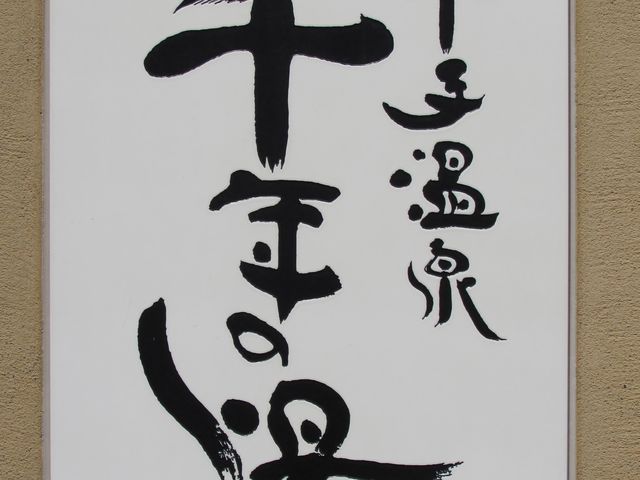 子温泉
千年の湯